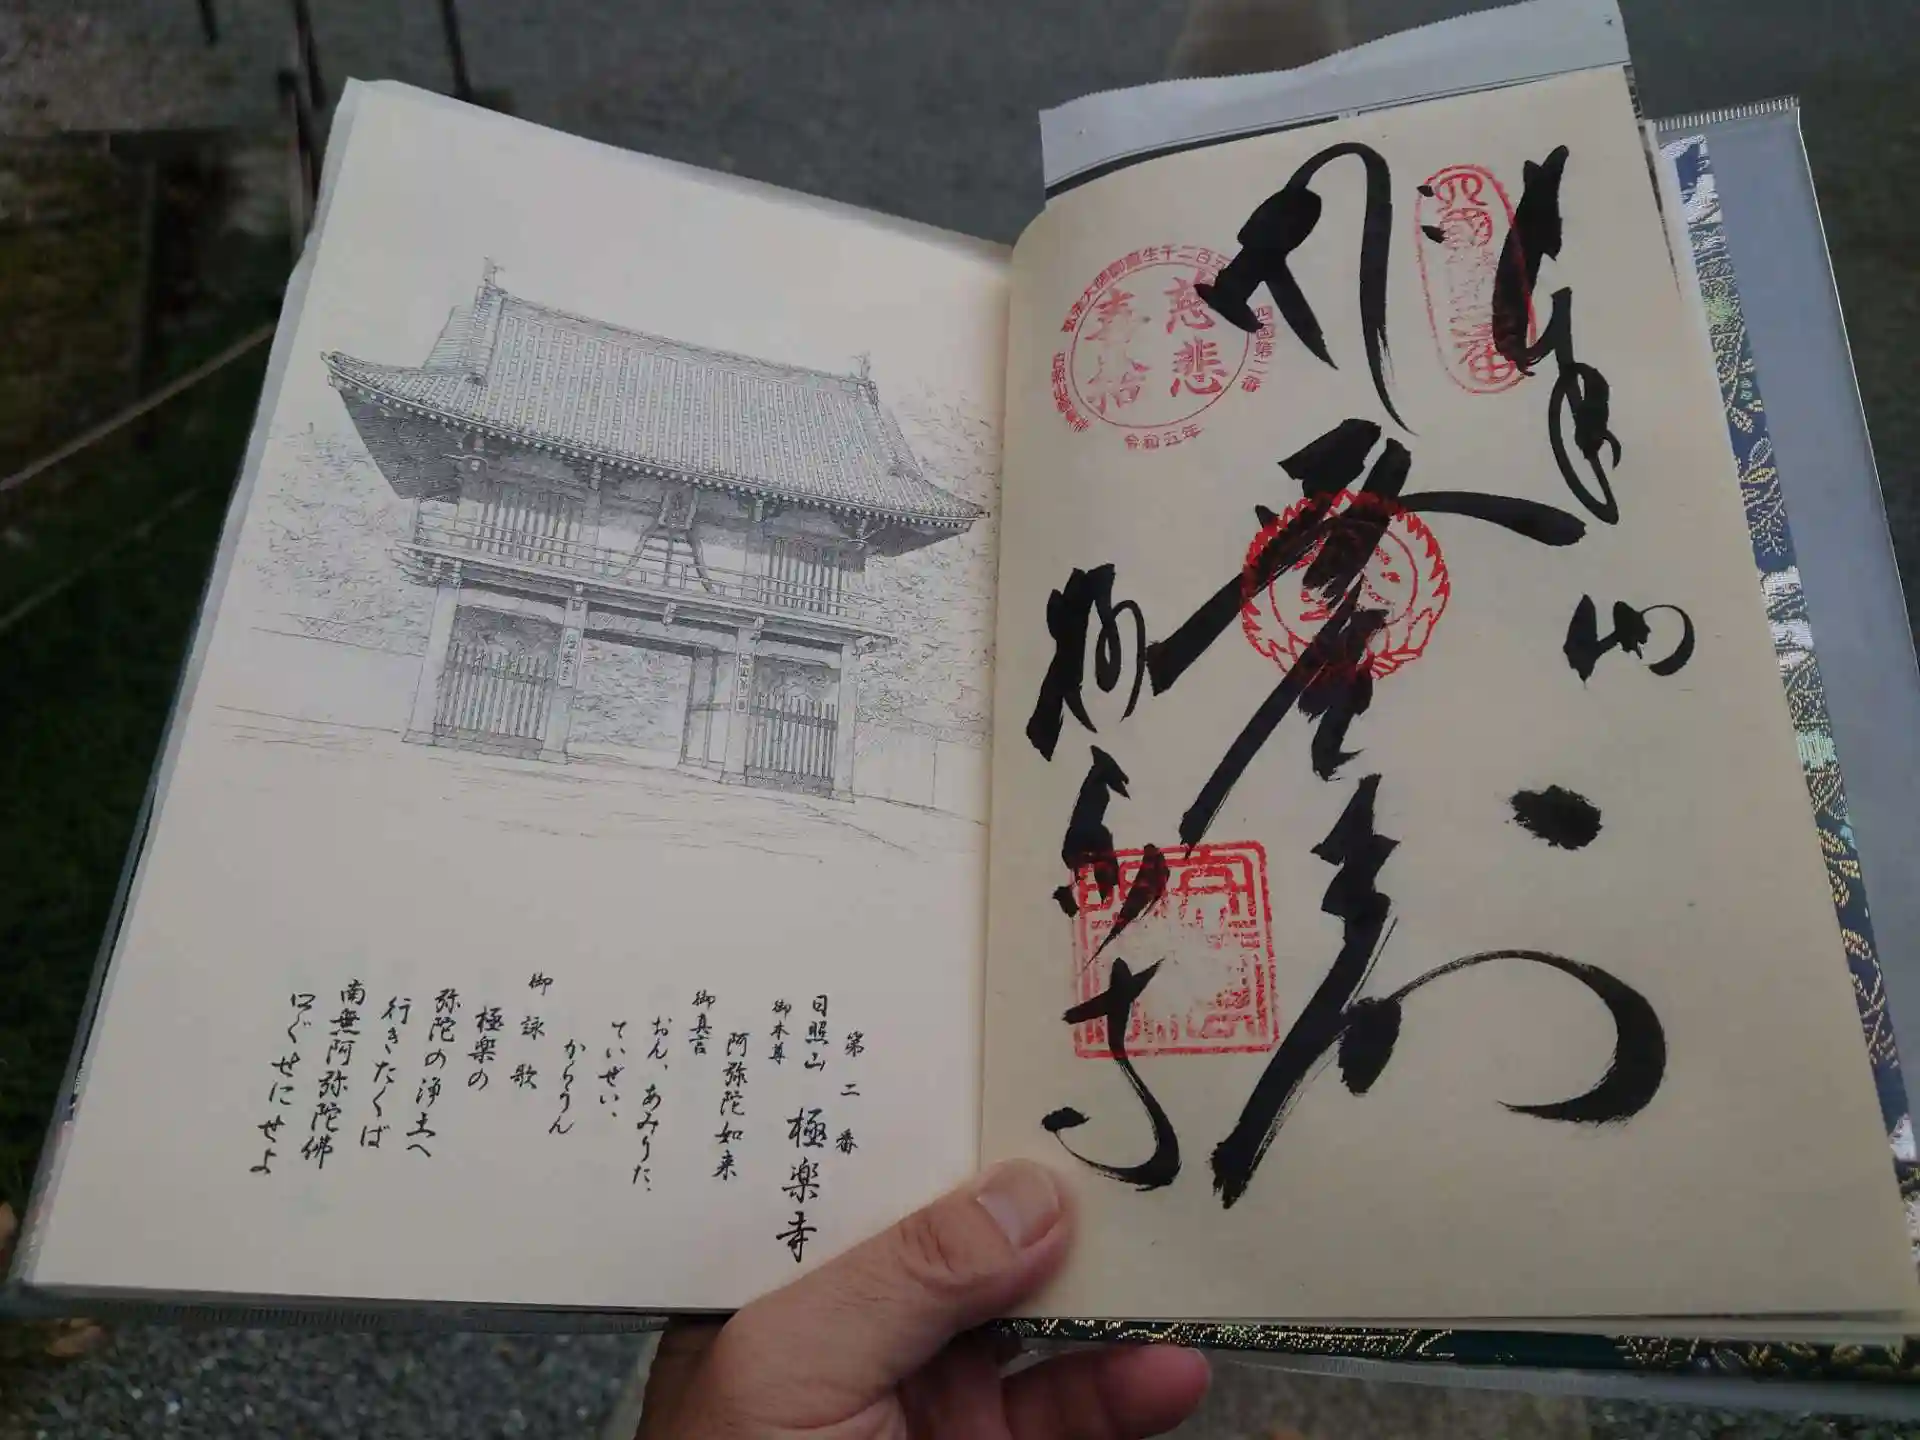 第二番
日照山 極楽寺
御本尊
阿弥陀如来
御真言
おん、あみりた、
ていぜい、
からうん
御詠歌
極楽の
弥陀の浄土へ
行きたくば
南無阿弥陀佛
口ぐせにせよ
奉
四国第二番
弘法大師御誕生千二百五
慈悲
喜捨
令和五年
極楽寺